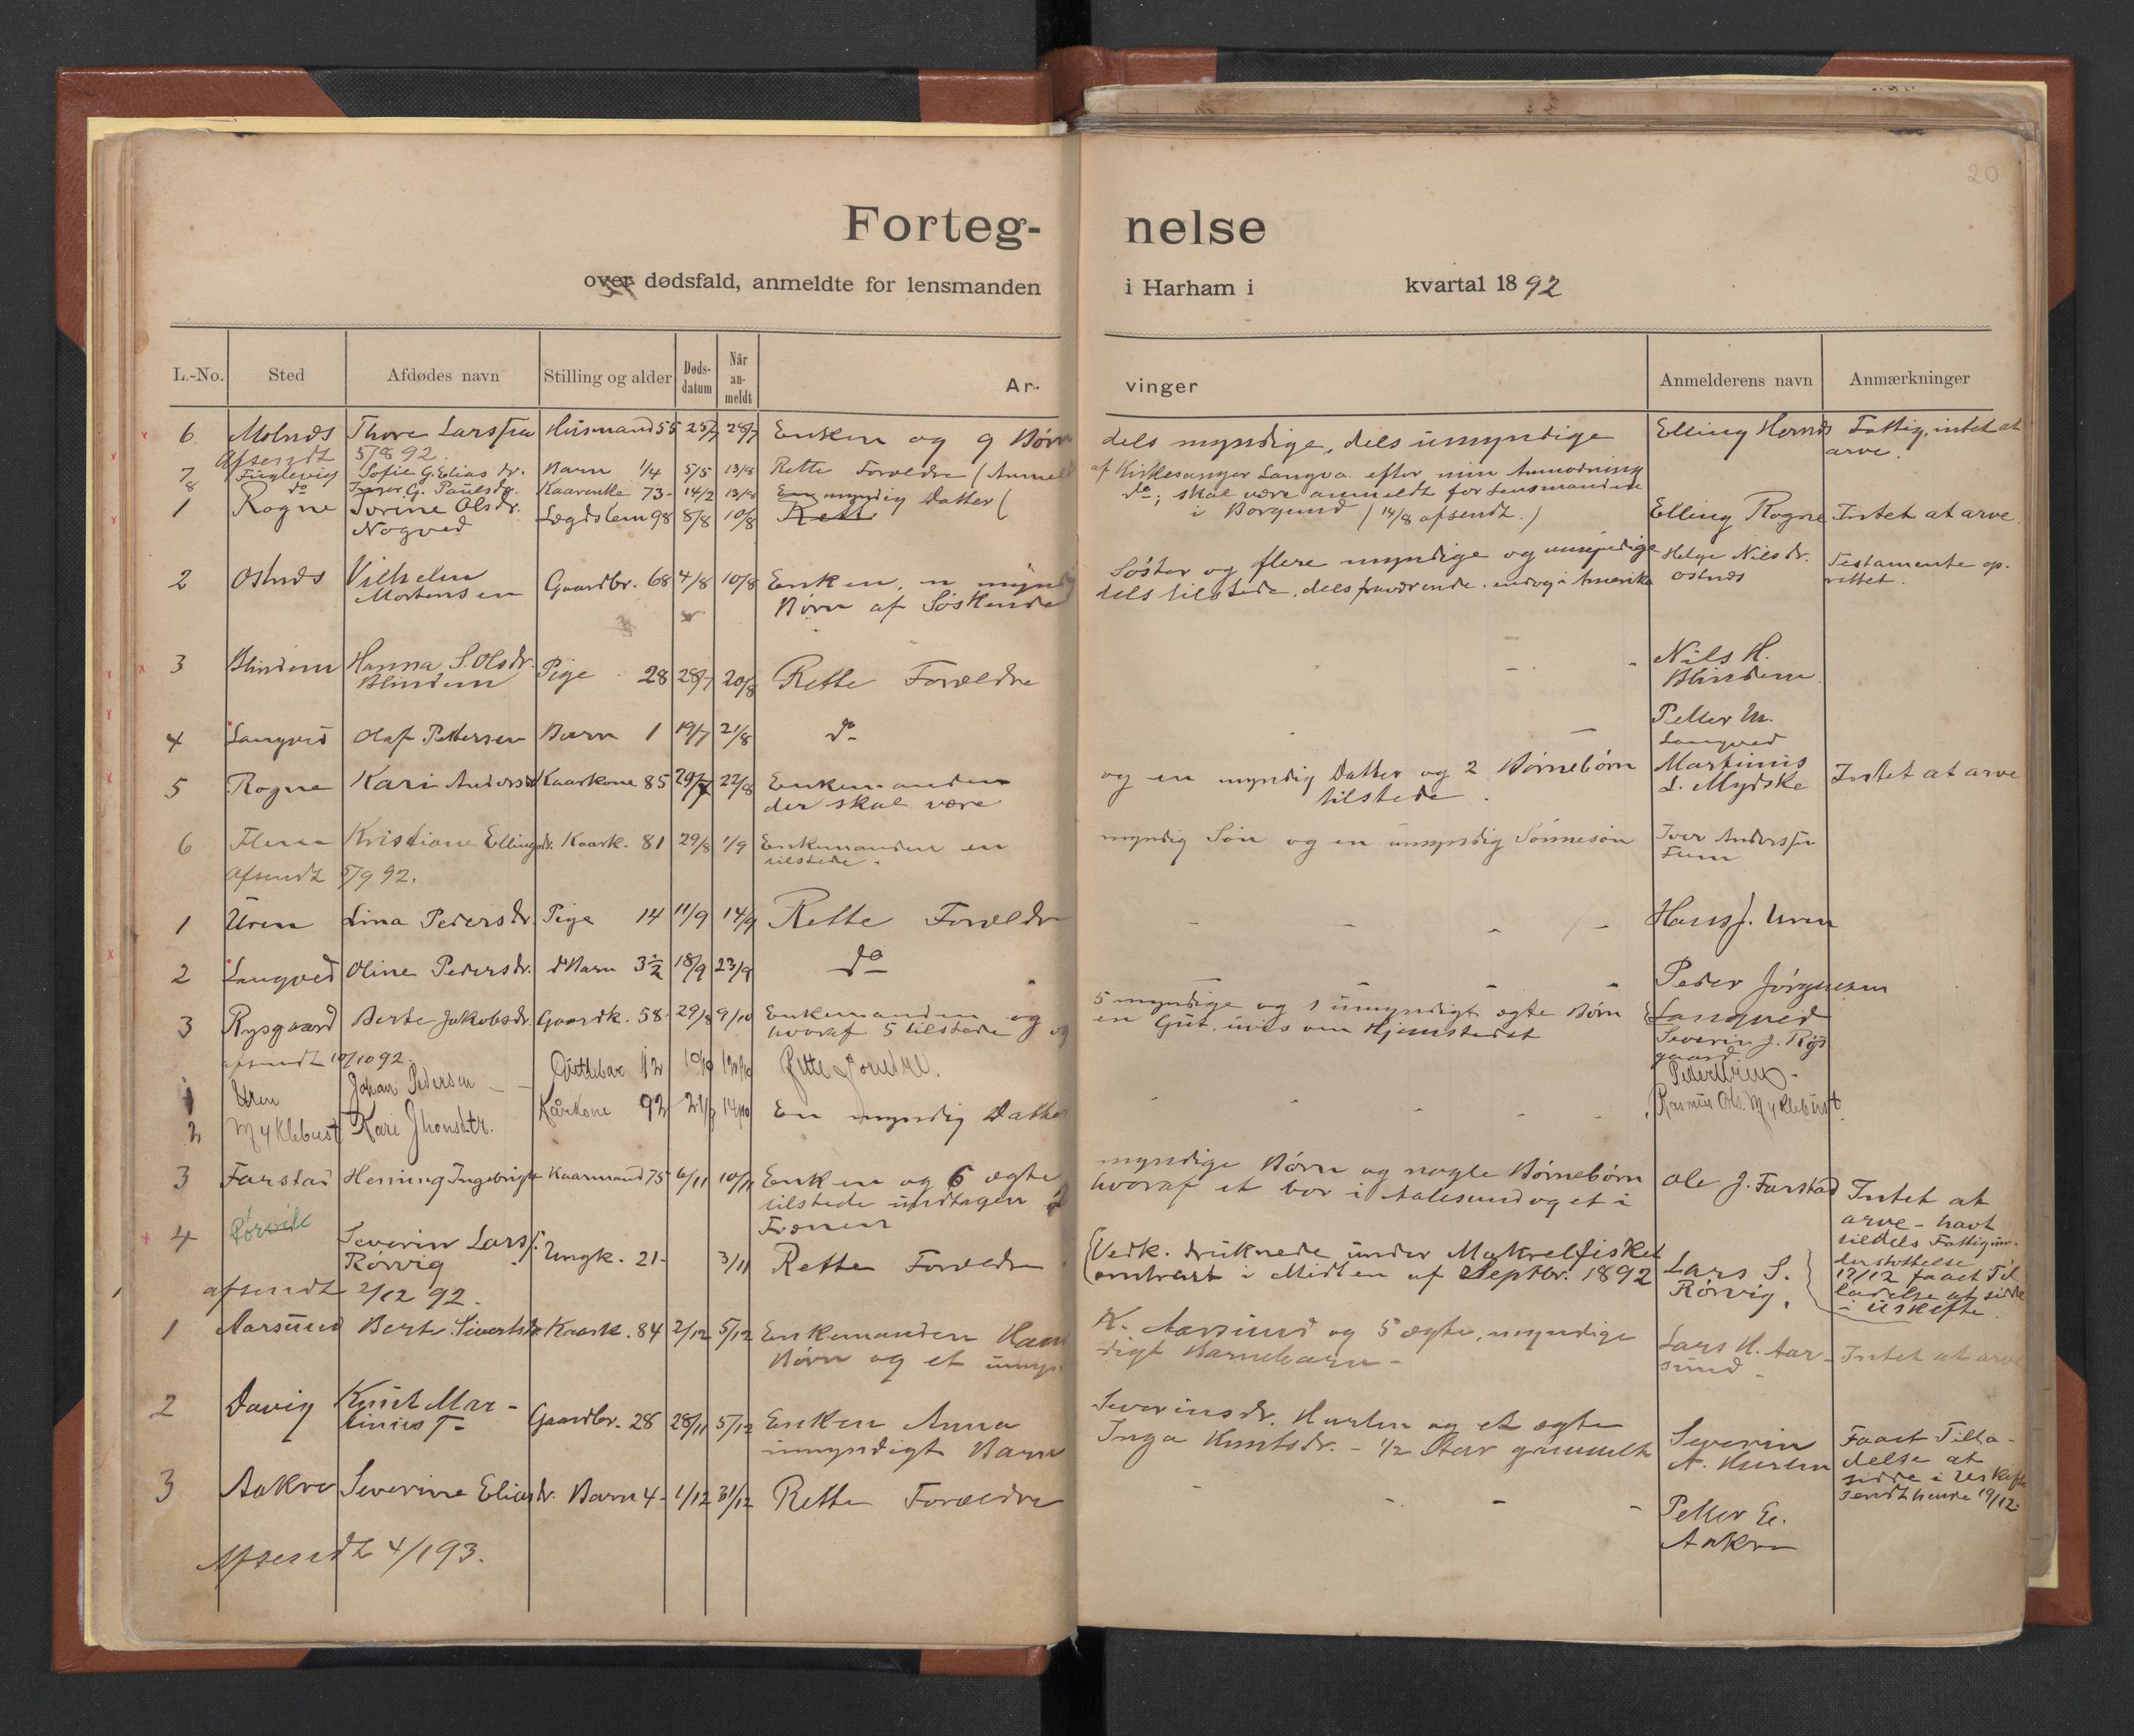 20
Forteg- nelse
over dødsfald, anmeldte for lensmanden i Harham i kvartal 1892
L.-No. Sted Afdødes navn Stilling og alder Døds-datum Når an-meldt Ar- vinger Anmelderens navn Anmærkninger
6 Molnæs Thore Larssen Husmand 55 25/7 28/7 Enken og 9 Børn dels myndige, dels umyndige Elling Hernæs Fattig, intet at
arve.
Afsendt 5/8 92.
7 Fuglevig Sofie G. Elias dr. Barn 1/4 5/5 13/8 Rette Forældre (Anmeldt af Kirkesanger Langva efter min Anmodning
8 do Inger G. Paulsdr. Kaarenke 73- 14/2 13/8 En myndig Datter ( do; skal være anmeldt for Lensmanden
1 Rogne Sorine Olsdr. Lægdslem 98 8/8 10/8 Rette i Borgund (14/8 afsendt.) Elling Rogne Intet at arve
Nogved
2 Ostnæs Vilhelm Gaardbr. 68 4/8 10/8 Enken, en myndig Søster og flere myndige og umyndige Helge Nilsdr. Testamente op-
Mortensen Børn af Søskende dels tilstede, dels fraværende, endog i Amerika Ostnæs rettet.
3 Blindem Hanna S. Olsdr. Pige 28 28/7 20/8 Rette Forældre Nils H.
Blindem Blindem
4 Langved Olaf Pettersen Barn 1 19/7 21/8 do Petter M.
Langved
5 Rogne Kari Andersdr Kaarkone 85 29/7 22/8 Enkemanden og en myndig Datter og 2 Børnebørn Martinus Intet at arve
der skal være tilstede. L. Mydske
6 Flem Kristiane Ellingsdr. Kaark. 81 29/8 1/9 Enkemanden en myndig Søn og en umyndig Sønnesøn Iver Anderssen
tilstede. Flem
Afsendt 5/9 92.
1 Uren Lina Pedersdr. Pige 14 11/9 14/9 Rette Forældre Hans J. Uren
2 Langved Oline Pedersdr. d Barn 3 1/2 18/9 23/9 do Peder Jørgensen
Langved
3 Rysgaard Berte Jakobsdr. Gaardk. 58- 29/8 9/10 Enkemanden og 5 myndige og 1 umyndigt ægte Børn Severin J. Rys
hvoraf 5 tilstede og en Gut uvis om Hjemstedet gaard.
afsendt 10/10 92.
1 Uren Johan Pedersen Guttebar 12 10/10 12/10 Rette Forældre. Peder Uren
2 Myklebust Kari Jhonsdtr. Kårkone 92 14/10 En myndig Datter Rasmus Ols. Myklebust
3 Farstad Hening Ingebrigts Kaarmand 75 6/11 10/11 Enken og 6 ægte myndige Børn og nogle Børnebørn Ole J. Farstad Intet at
tilstede undtagen hvoraf et bor i Aalesund og et i arve - havt
Frænen tildels Fattigun-
derstøttelse
4 Rørvik Severin Lars s. Ungk. 21- 3/11 Rette Forældre Vedk. druknede under Makrelfisket Lars S. 12/12 faaet Til
Rørvig omtrent i Midten af Septbr. 1892 Rørvig. ladelse at sidde
i Uskifte
afsendt 2/12 92.
1 Aarsund Berte Sivertsdr. Kaark. 84 2/12 5/12 Enkemanden Hans K. Aarsund og 5 ægte, myndige Lars H. Aar- Intet at arve
Børn og et umyndigt Barnebarn - sund
2 Davig Knut Mar- Gaardbr. 28 28/11 5/12 Enken Anna Severinsdr. Hurlen og et ægte Severin Faaet Tilla-
tinius s. umyndigt Barn Inga Knutsdr. - 1/2 Aar gammelt A. Hurlen delse at
sidde i Uskifte
sendt herfra 19/12
3 Aakre Severine Eliasdr. Barn 4- 1/12 31/12 Rette Forældre Petter E.
Aakre
Afsendt 4/1 93.